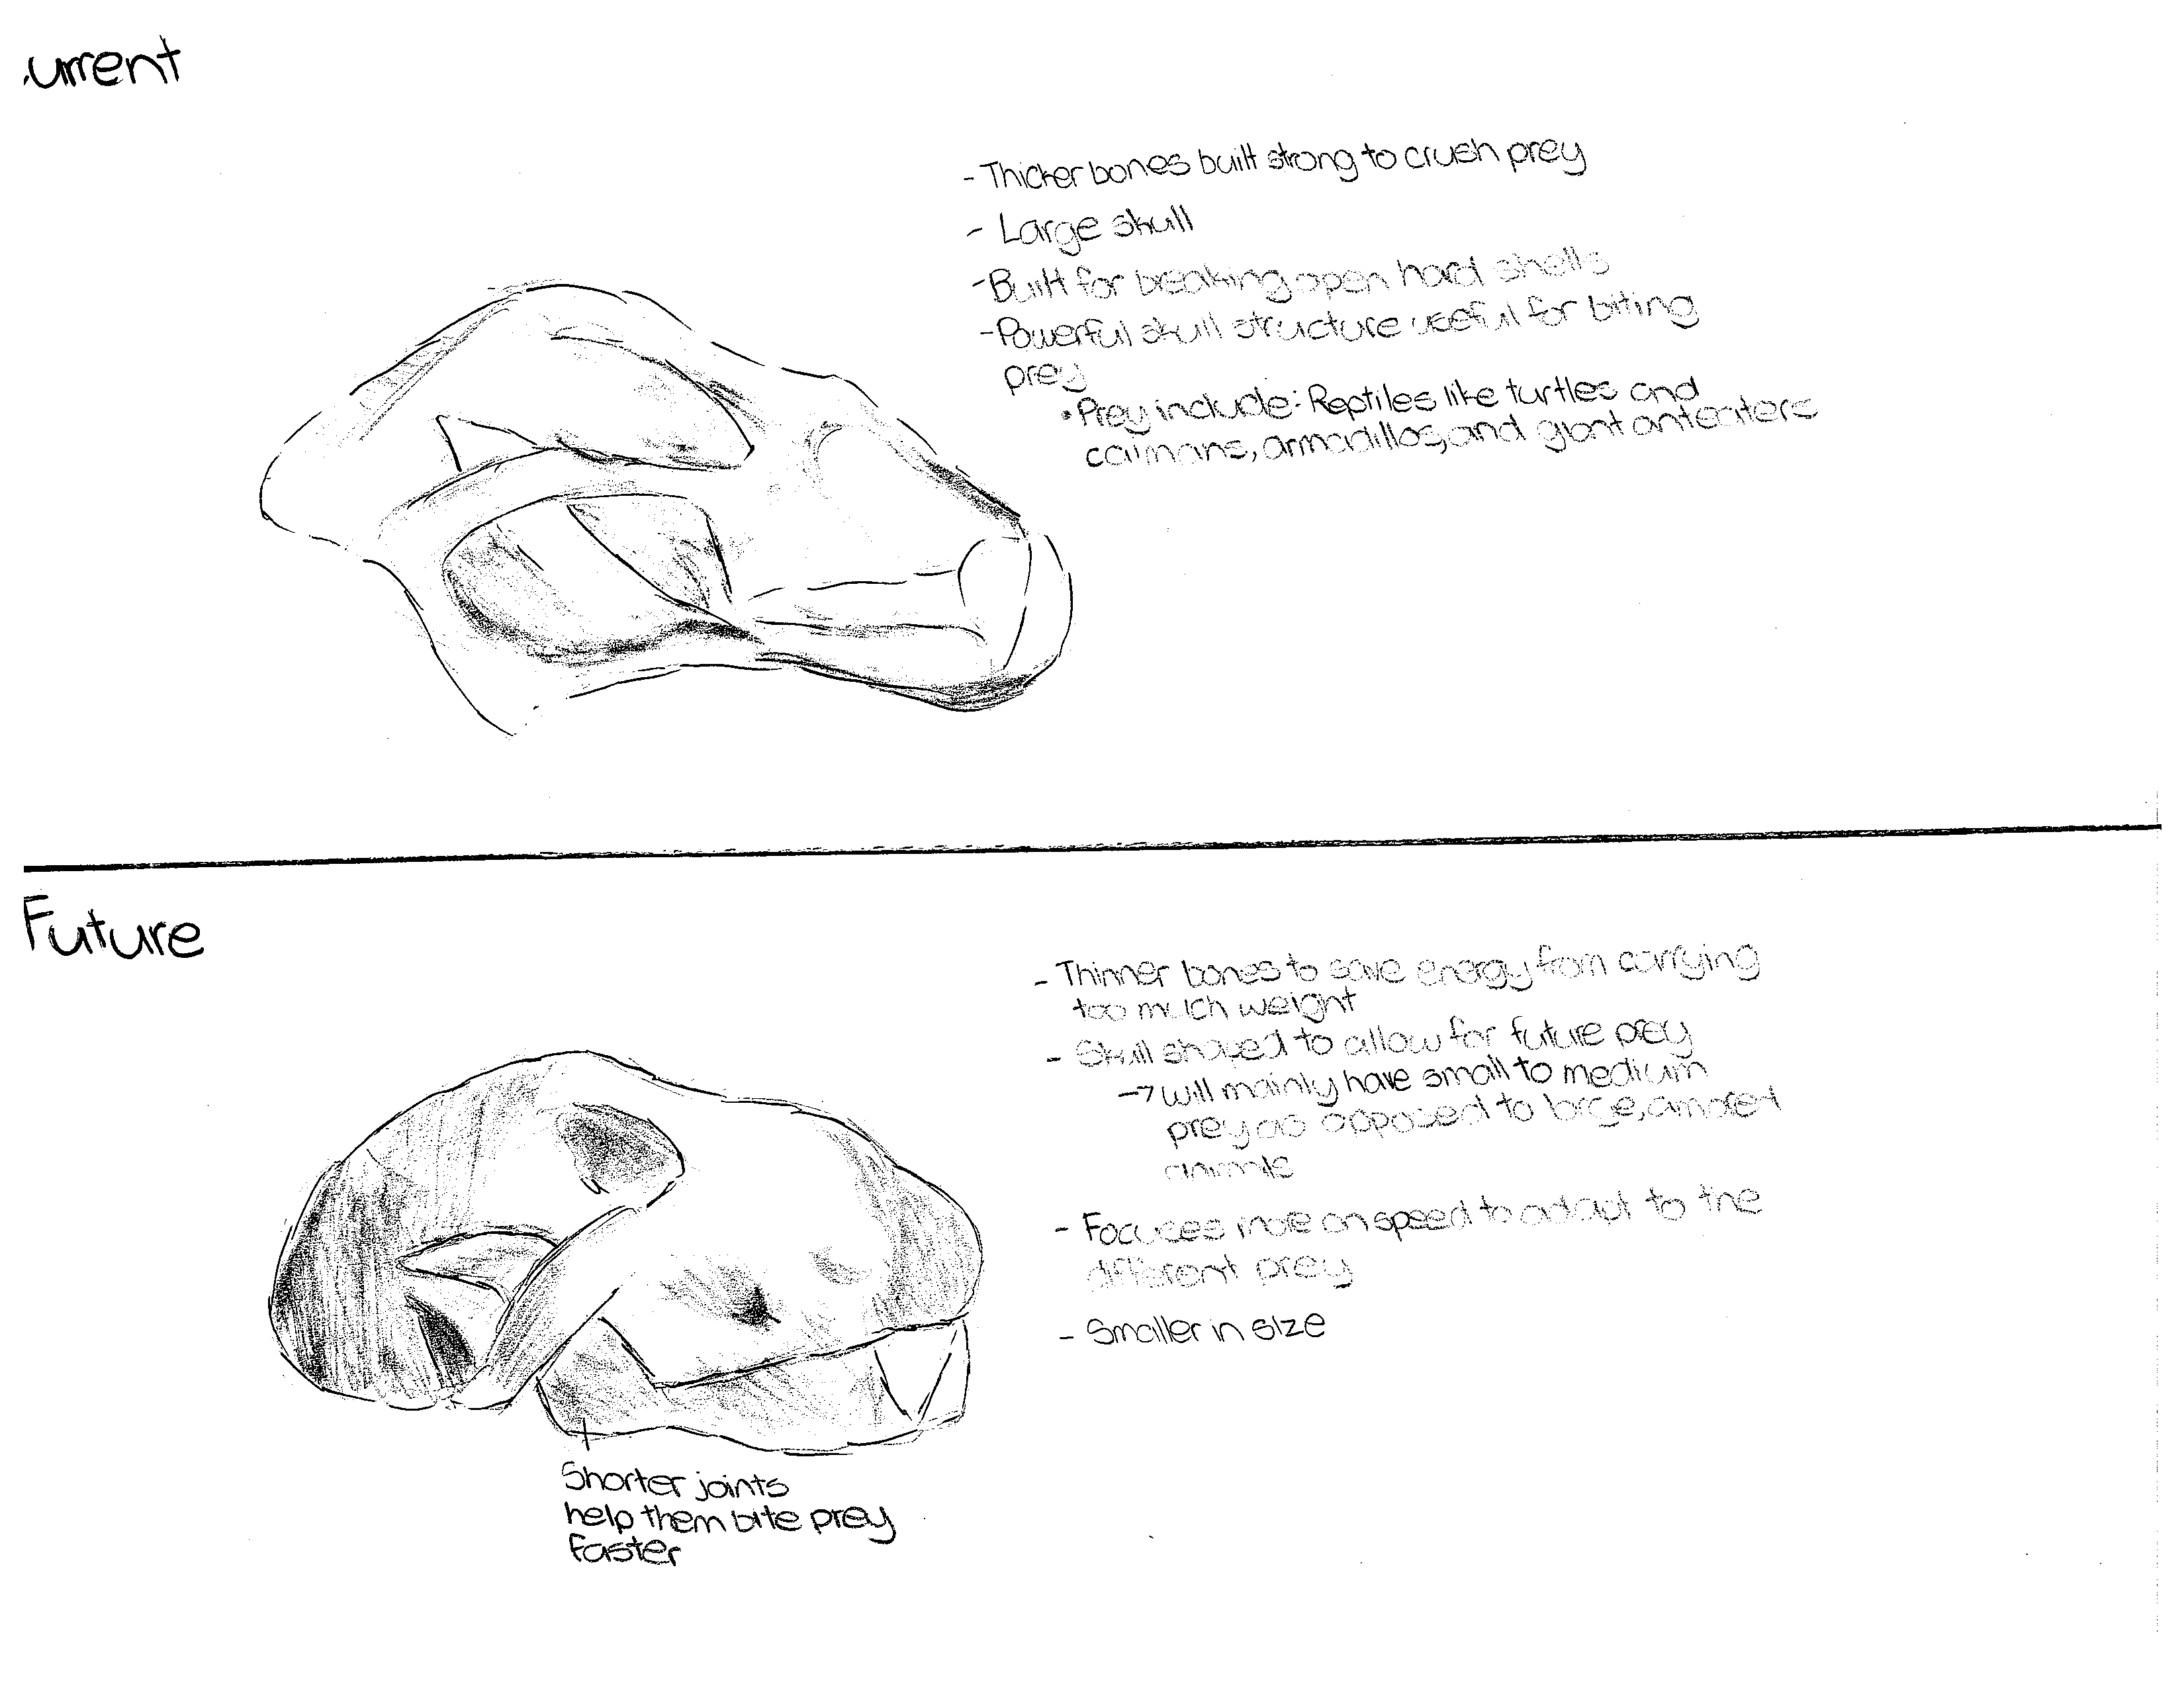 Current
- Thicker bones built strong to crush prey
- Large skull
- Built for breaking open hard shells
- Powerful skull structure useful for biting
prey
• Prey include: Reptiles like turtles and
caimans, armadillos, and giant anteaters
Future
- Thinner bones to save energy from carrying
too much weight
- Skull shaped to allow for future prey
→ will mainly have small to medium
prey as opposed to large, amored
animals
- Focuses more on speed to adapt to the
different prey
- Smaller in size
Shorter joints
help them bite prey
faster